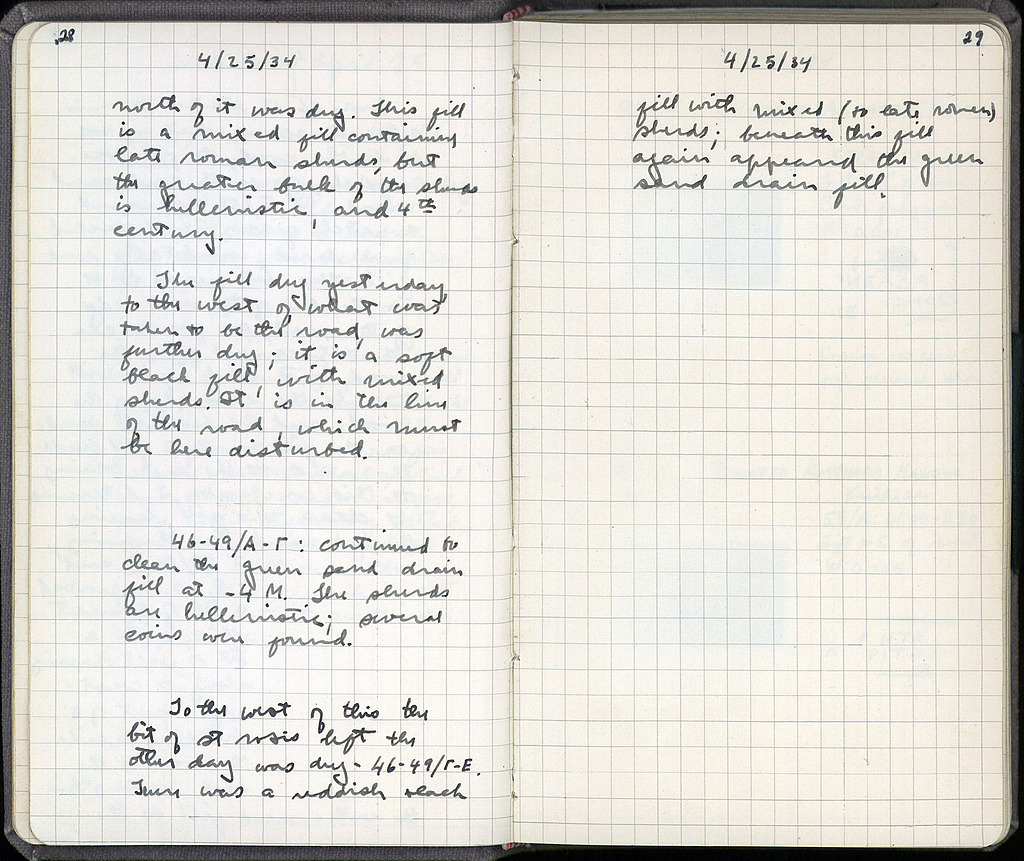 28
4/25/34
north of it was dug. This fill
is a mixed fill containing
late roman sherds, but
the greater bulk of the sherds
is hellenistic, and 4th
century.
The fill dug yesterday
to the west of what was
taken to be the road, was
further dug; it is a soft
black fill, with mixed
sherds. It is in the line
of the road, which must
be here disturbed.
46-49/Α-Γ: continued to
clean the green sand drain
fill at -4 M. The sherds
are hellenistic; several
coins were found.
To the west of this the
bit of st rosis left the
other day was dug - 46-49/Γ-Ε.
There was a reddish black
29
4/25/34
fill with mixed (to late roman)
sherds; beneath this fill
again appeared the green
sand drain fill.